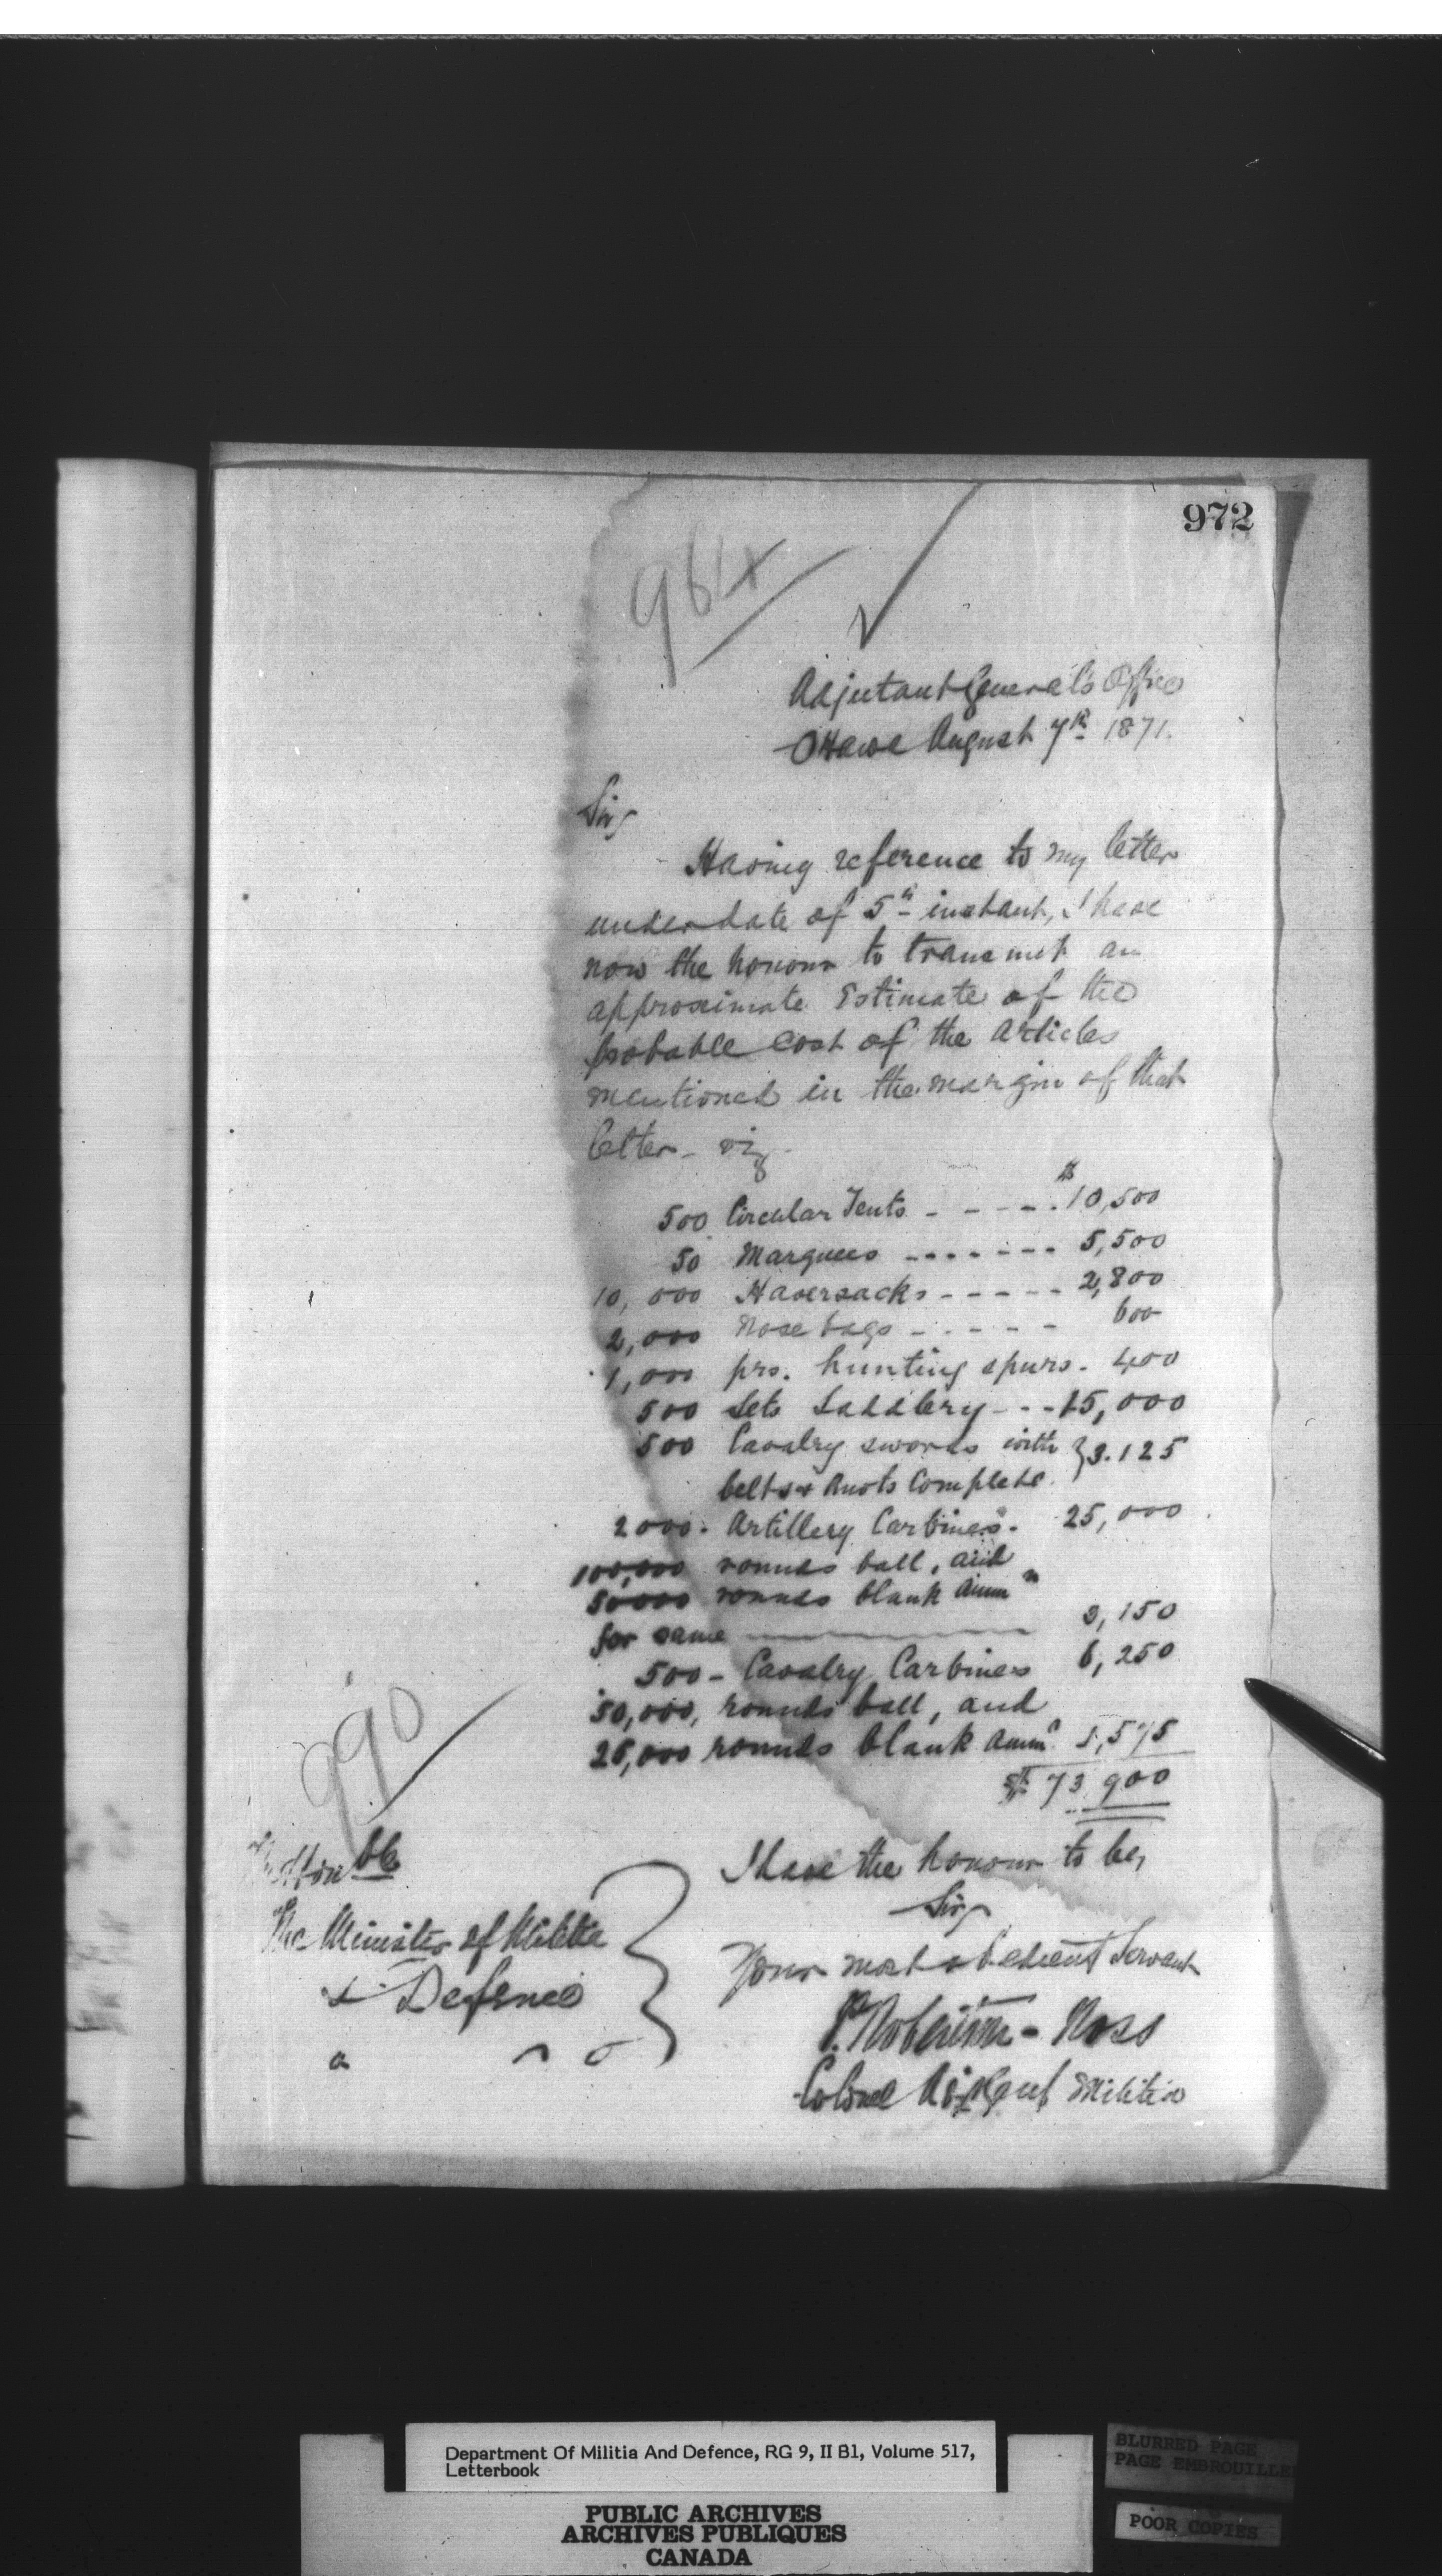 972
964
Adjutant General's Office
Ottawa August 7th 1871.
Sir,
Having reference to my letter
under date of 5th instant, I have
now the honour to transmit an
approximate Estimate of the
probable Cost of the Articles
mentioned in the margin of that
letter - viz -
500 Circular Tents - - - - - $10,500
50 Marquees - - - - - - - 5,500
10,000 Haversacks - - - - - 2,800
2,000 Nose bags - - - - - 600
1,000 prs. hunting spurs - 400
500 Sets Saddlery - - - 15,000
500 Cavalry swords with } 3.125
belts & knots Complete
2000 - Artillery Carbines - 25,000
100,000 rounds ball, and
50000 rounds blank Ammn
for same 3,150
500 - Cavalry Carbines 6,250
50,000, rounds ball, and
25,000 rounds blank Ammn 1,575
$ 73,900
990
I have the honour to be,
Sir,
Your most obedient Servant
P. Robertson - Ross
Colonel Adjt Genl Militia
The Honble
The Minister of Militia
& Defence
Department Of Militia And Defence, RG 9, II B1, Volume 517,
Letterbook
PUBLIC ARCHIVES
ARCHIVES PUBLIQUES
CANADA
BLURRED PAGE
PAGE EMBROUILLEE
POOR COPIES